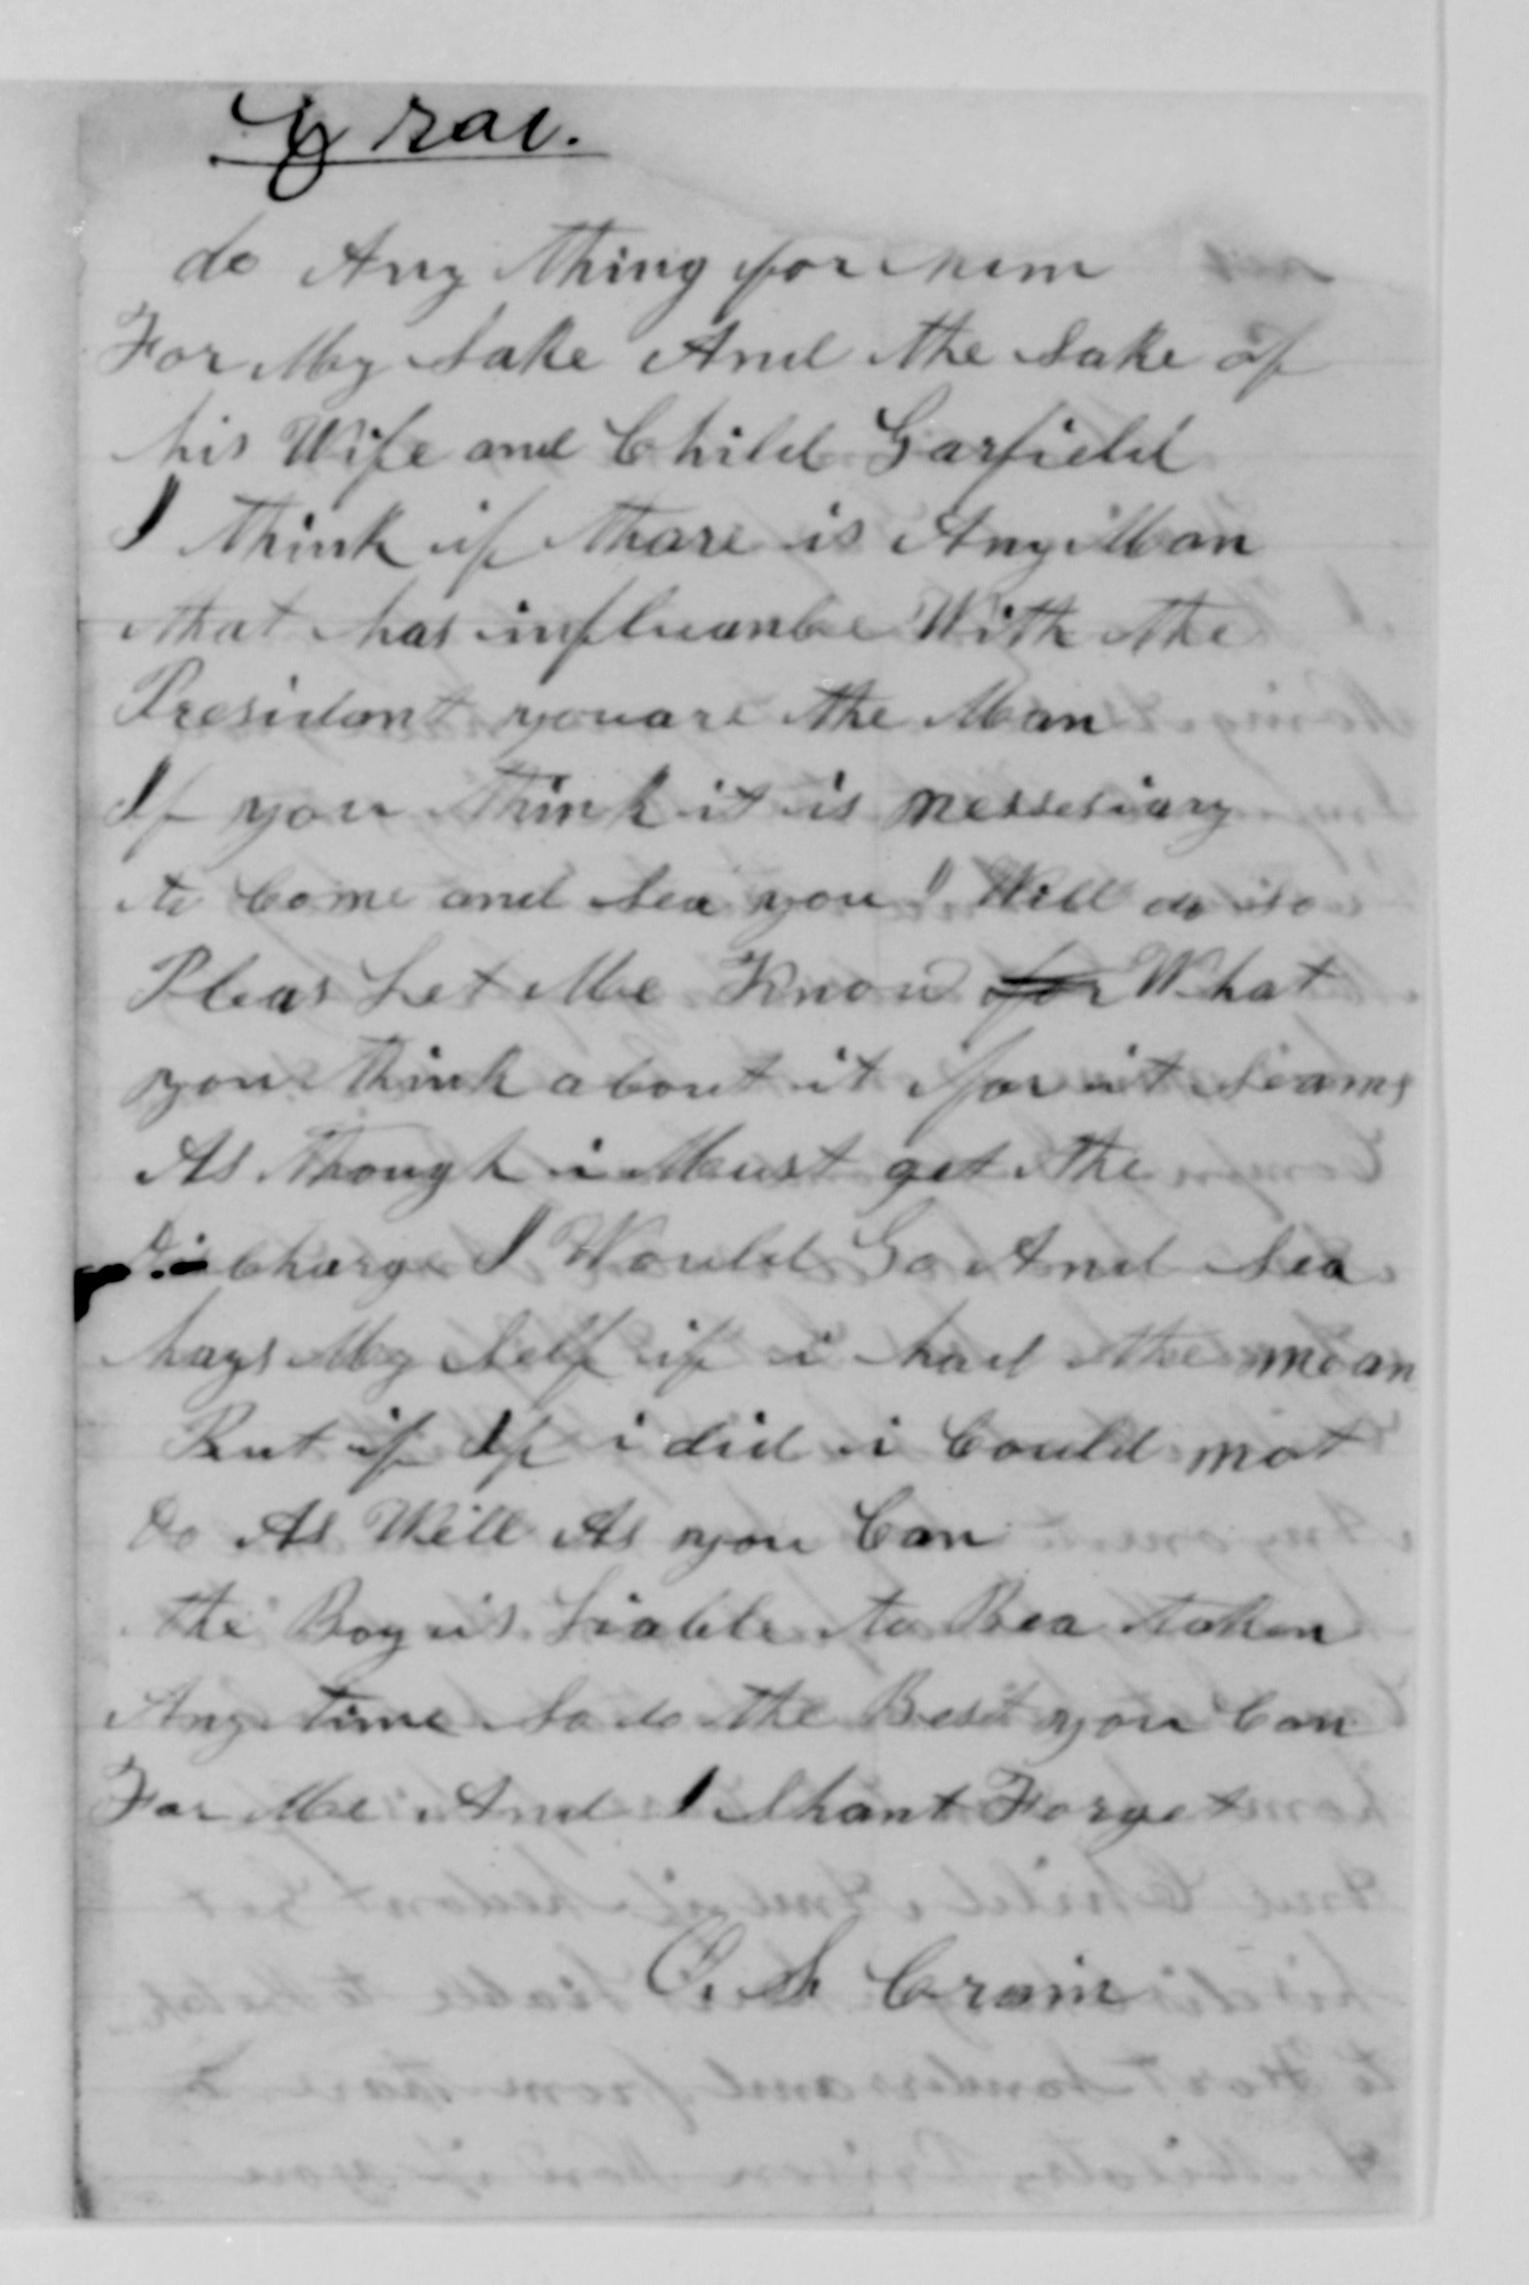 do Any thing for him
For My Sake And the Sake of
his Wife and Child Garfield
I think if thare is Any Man
that has influeance With the
Presidant you are the Man
If you think it is nessesiary
to Come and Sea you I Will do so
Pleas Let Me Know for What
you think about it for it Seams
As though i Must get the
discharge I Would Go And Sea
hays My Self if i had the mean
But if If i did i Could not
do As Well As you Can
the Boy is Liable to Bea taken
Any time So do the Best you Can
For Me And I Shant Forget
O. S Crain